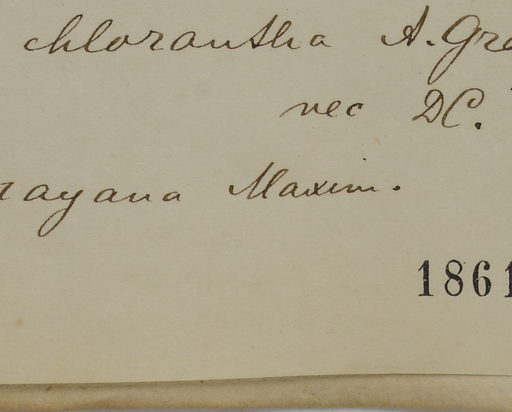 chlorantha A. Gre
nec DC.
rayana Maxim.
1861